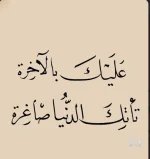 عَلَيْكَ بِالآخِرة
تأتِكَ الدُّنْيَا صَاغِرة